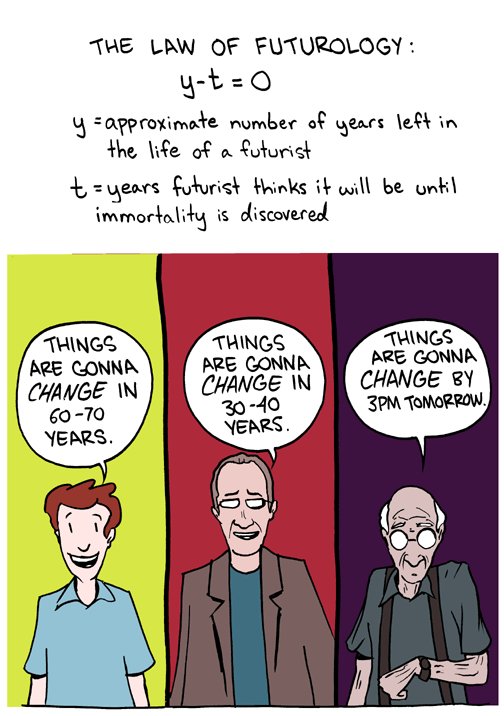 THE LAW OF FUTUROLOGY:
y-t=0
y = approximate number of years left in
the life of a futurist
t = years futurist thinks it will be until
immortality is discovered
THINGS
ARE GONNA
CHANGE IN
60-70
YEARS.
THINGS
ARE GONNA
CHANGE IN
30-40
YEARS.
THINGS
ARE GONNA
CHANGE BY
3PM TOMORROW.